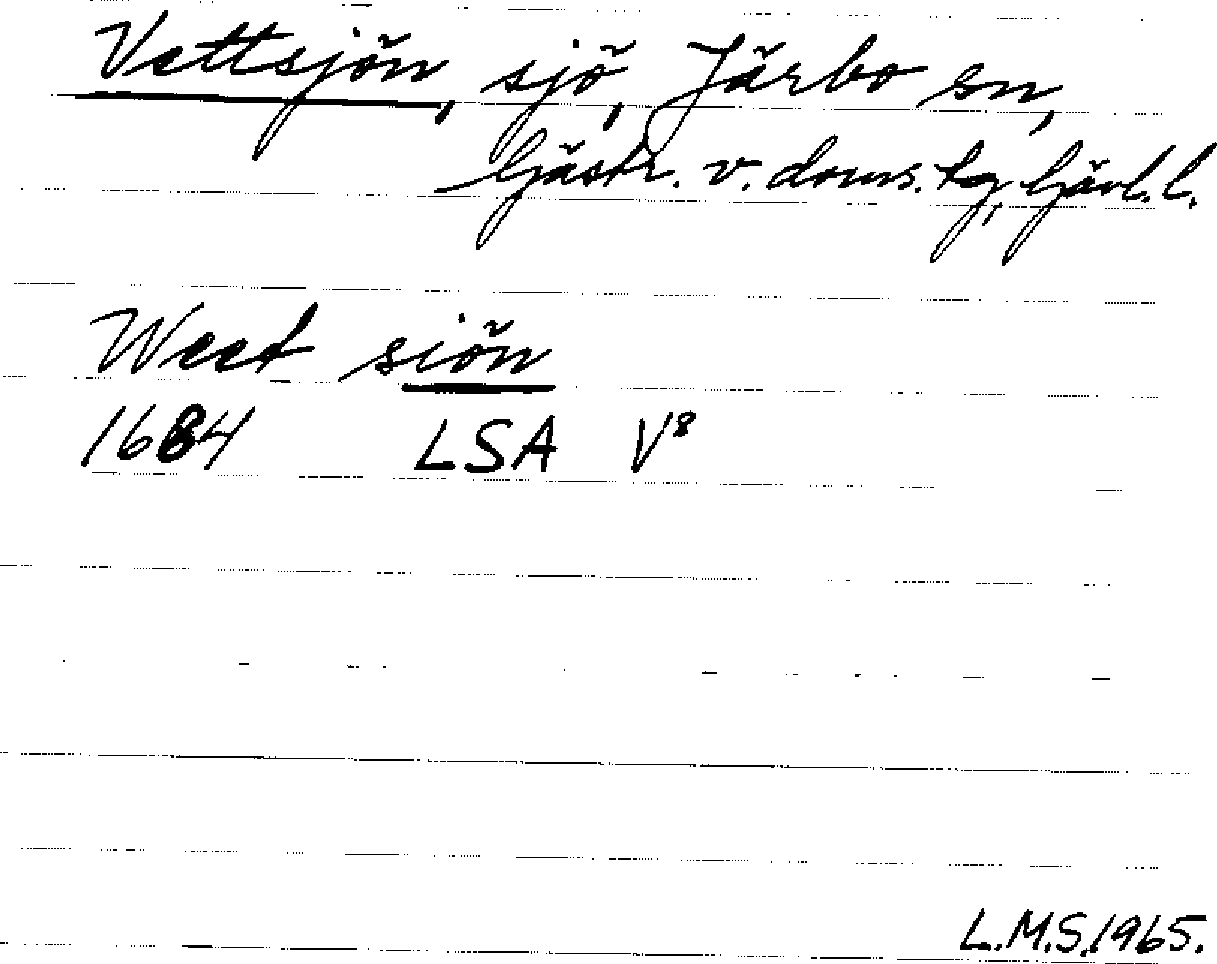 Vettsjön, sjö, Järbo sn,
Gästr. v. doms. tg, Gävl. l.
Weet siön
1684 LSA V⁸
L.M.S. 1965.